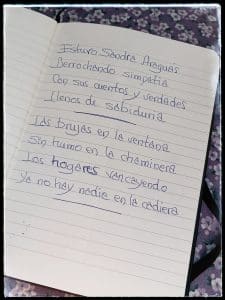 Estuvo Sandra Araguás
Derrochando simpatia
Con sus cuentos y verdades
Llenos de sabiduria
Las brujas en la ventana
Sin humo en la chaminera
Los hogares van cayendo
Ya no hay nadie en la cadiera